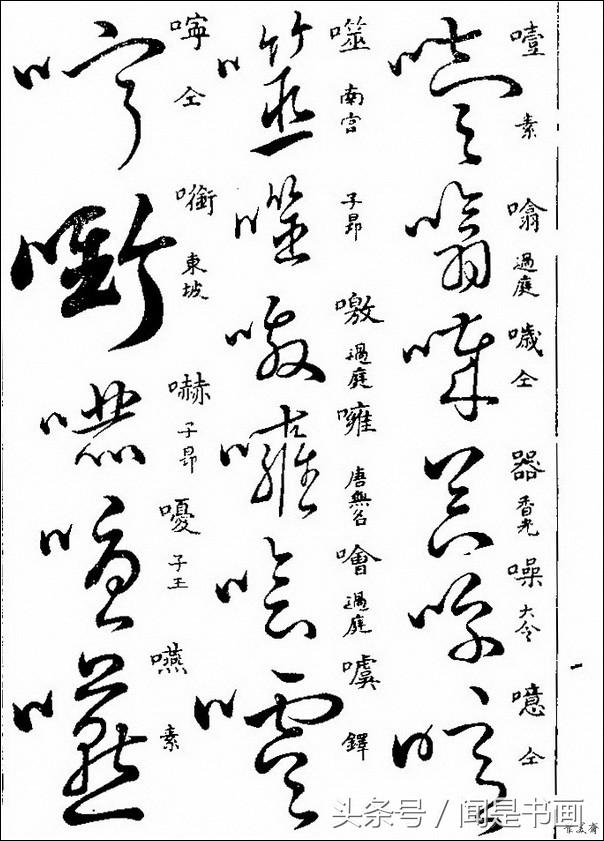 噎 素
噏 過庭
噦 仝
器 香光
噪 大令
噫 仝
噬 南宮
子昂
噭 過庭
噰 唐無名
噲 過庭
噳 鐸
嚀 仝
㘅 東坡
嚇 子昂
嚘 子王
嚥 素
头条号 / 闻是书画